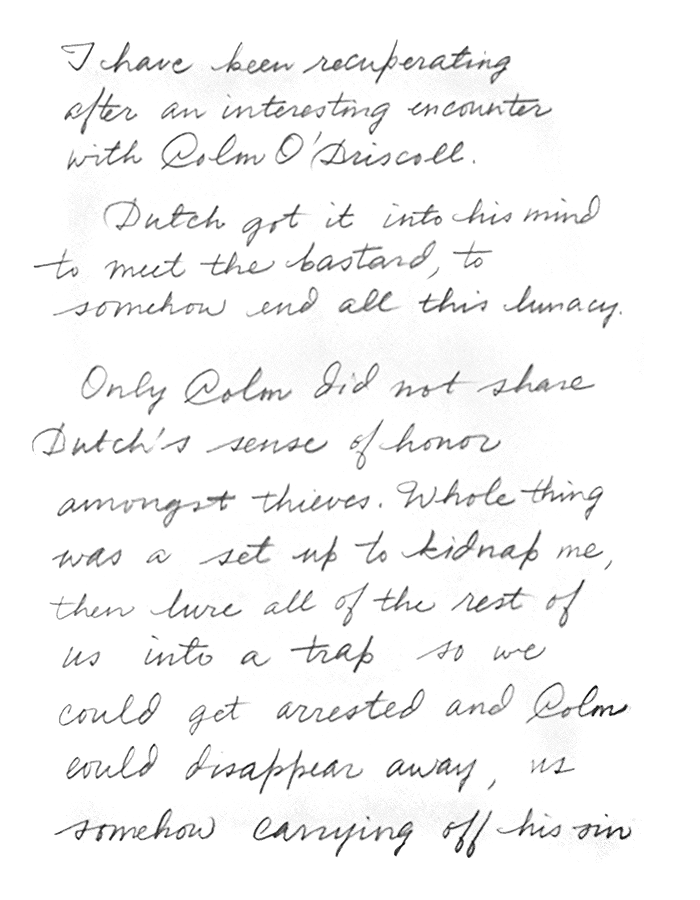 I have been recuperating
after an interesting encounter
with Colm O'Driscoll.
Dutch got it into his mind
to meet the bastard, to
somehow end all this lunacy.
Only Colm did not share
Dutch's sense of honor
amongst thieves. Whole thing
was a set up to kidnap me,
then lure all of the rest of
us into a trap so we
could get arrested and Colm
could disappear away, us
somehow carrying off his sin